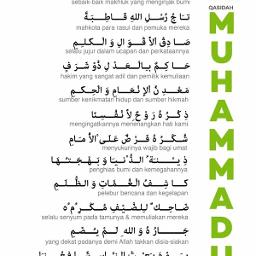 QASIDAH
MUHAMMADU
sebaik-baik makhluk yang menginjak bumi
تَاجُ رُسُلِ اللهِ قَاطِبَةً
mahkota para rasul dan pemuka mereka
صَادِقُ الْأَقْوَالِ وَالْكَلِمِ
selalu jujur dalam ucapan dan perkataannya
حَاكِمٌ بِالْعَدْلِ ذُو شَرَفٍ
hakim yang sangat adil dan pemilik kemuliaan
مَعْدِنُ الْإِنْعَامِ وَالْحِكَمِ
sumber kenikmatan hidup dan sumber hikmah
ذِكْرُهُ رَوْحٌ لِأَنْفُسِنَا
mengingatkannya menenangkan hati kami
شُكْرُهُ فَرْضٌ عَلَى الْأُمَمِ
mensyukurinya wajib bagi umat
زِيْنَةُ الدُّنْيَا وَبَهْجَتُهَا
penghias bumi dan kemegahannya
كَاشِفُ الْغُمَّاتِ وَالظُّلَمِ
pelebur bencana dan kegelapan
ضَاحِكٌ لِلضَّيْفِ مُكْرِمُهُ
selalu senyum pada tamunya & memuliakan mereka
جَارُهُ وَاللهِ لَمْ يُضَمِ
yang dekat padanya demi Allah takkan disia-siakan